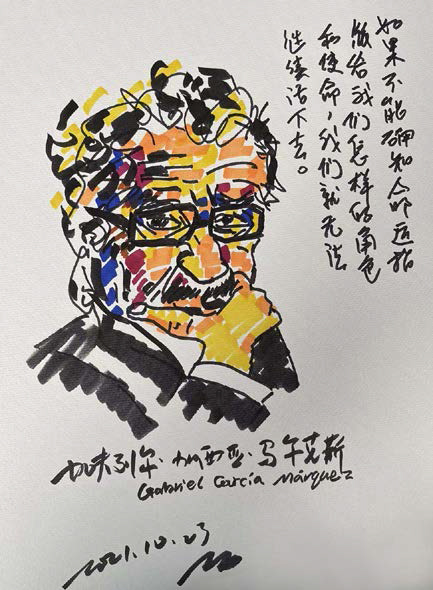 如果不能确知命运指
派给我们怎样的角色
和使命，我们就无法
继续活下去。
加夫列尔·加西亚·马尔克斯
Gabriel García Márquez
2021.10.23